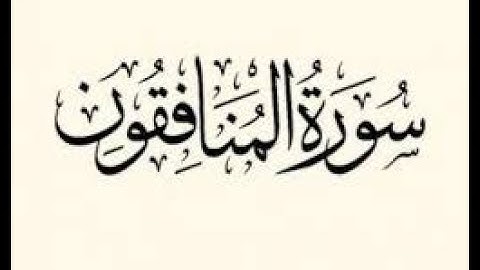 سُورَةُ الْمُنَافِقُون